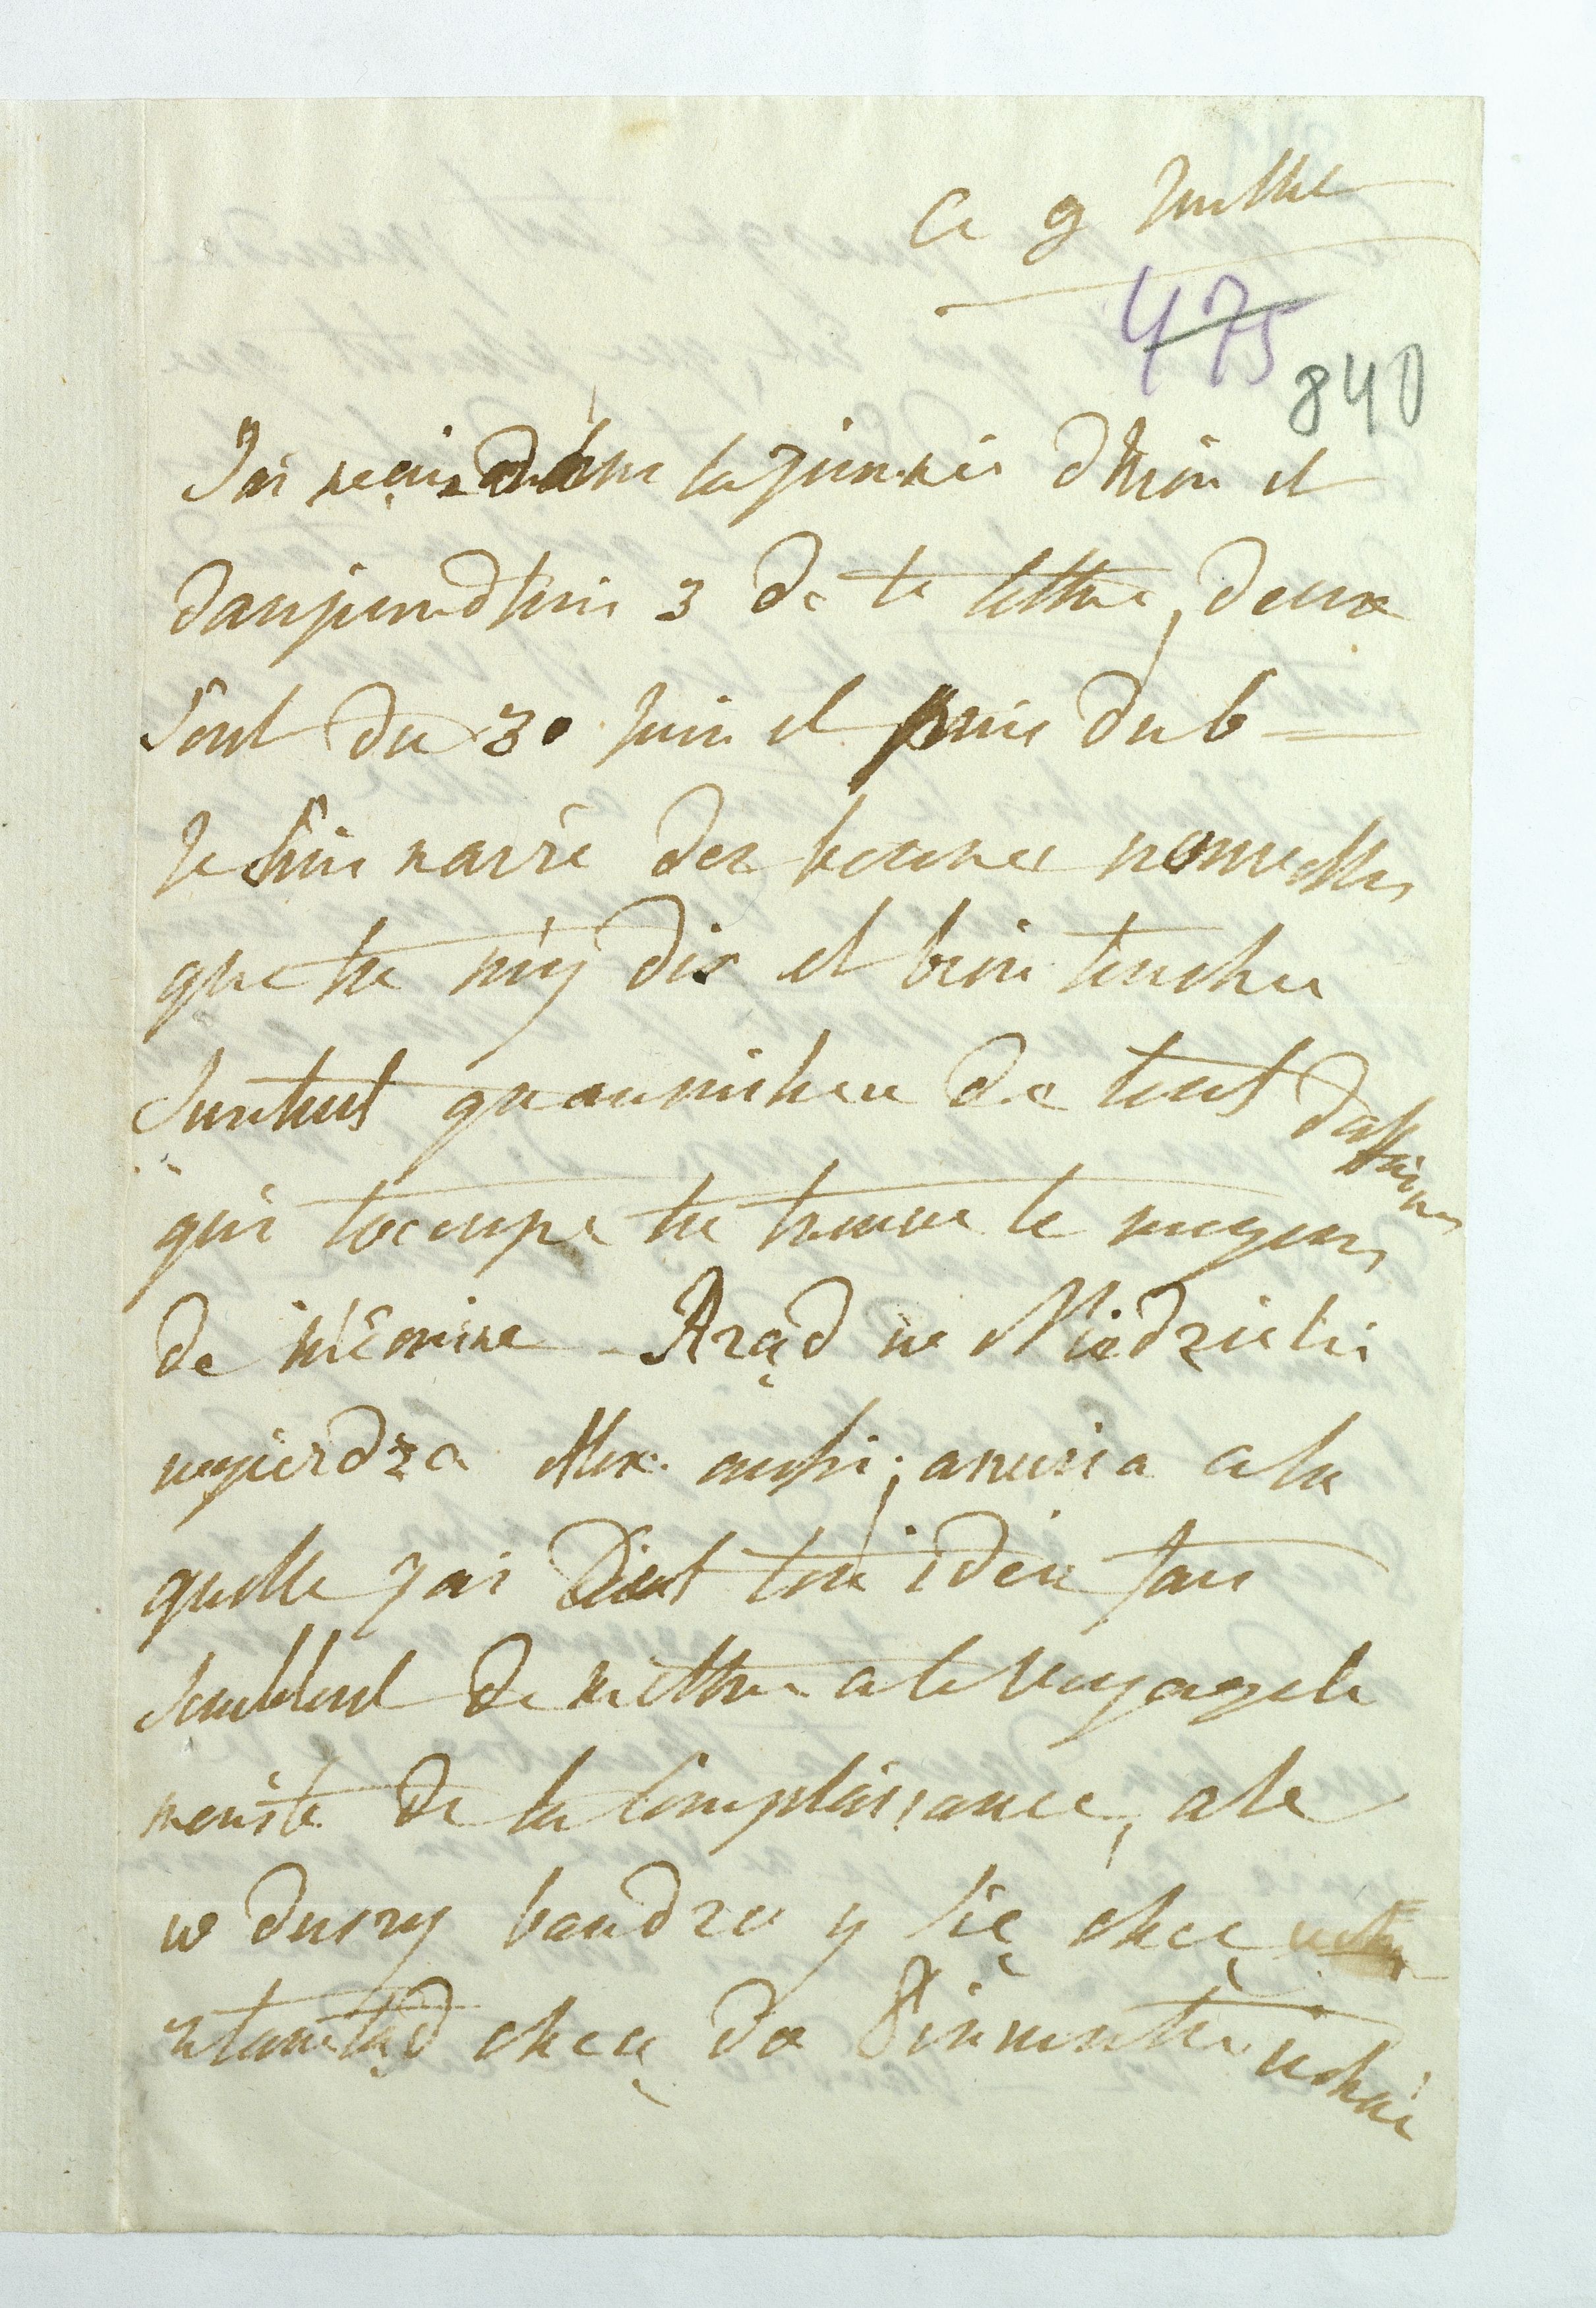 Ce 9 Juillet
475
840
J'ai reçu dans la journée d'hier et
d'aujourdhui 3 de te lettre, deux
sont du 30 Juin et puis du 6 =
Je suis ravie des bonnes nouvelles
que tu m'y dis et bien touchée
surtout qu'au milieu de tout d'affaires
qui t'occupe tu trouve le moyens
de m'écrire - Rząd w Niedzielę
wyjerdza Alex. aussi; a la
quelle j'ai Dit ton idée fait
semblant de mettre a le voyage le
reste de la Complaisance, ale
w duszy bardzo y się chce
ztamtąd chcą do